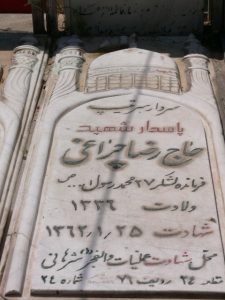 سردار سرتیپ
پاسدار شهید
حاج رضا چراغی
فرمانده لشکر ۲۷ محمد رسول الله
ولادت ۱۳۳۶
شهادت ۱۳۶۲/۱/۲۵
محل شهادت عملیات والفجر شرهانی
قطعه ۲۴ ردیف ۷۶ شماره ۲۴